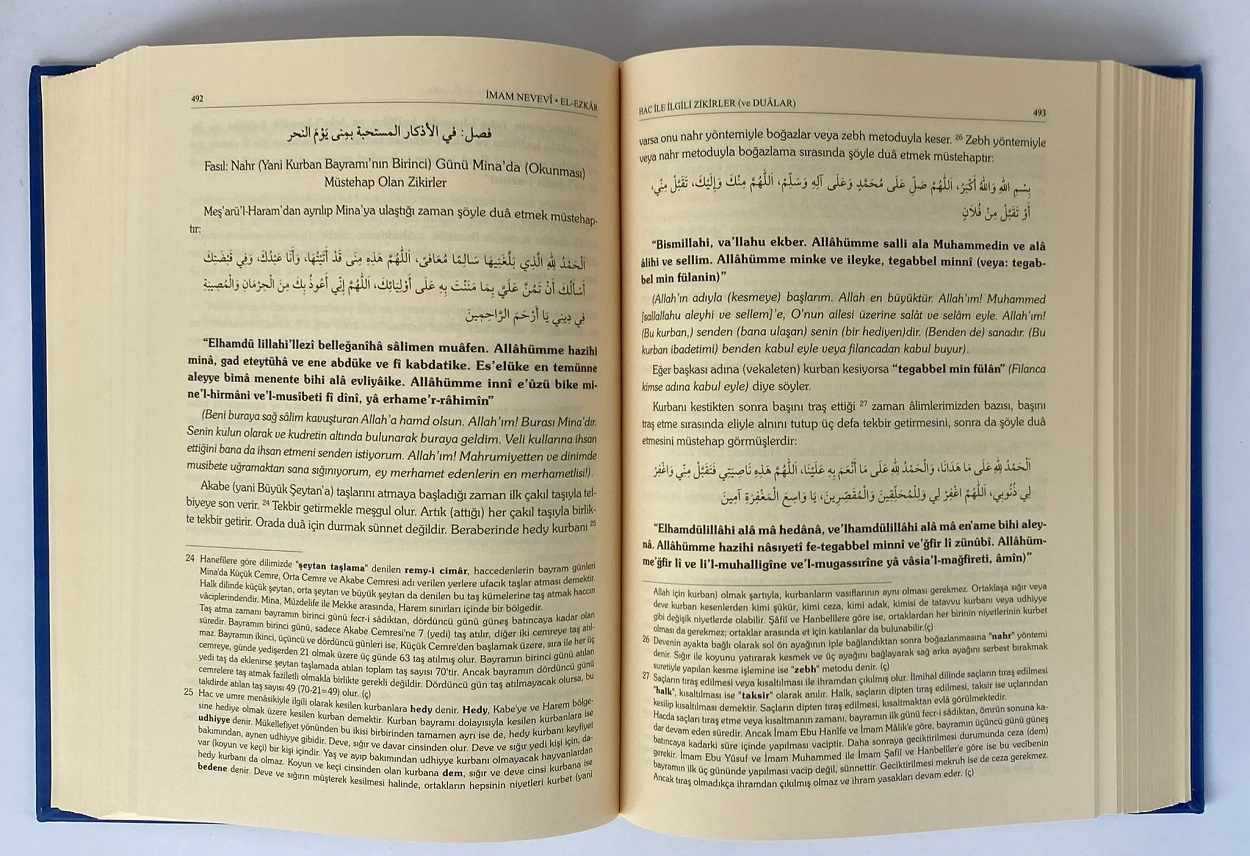 492
İMAM NEVEVÎ • EL-EZKÂR
فصل: في الأذكار المستحبة بمِنى يَوْمَ النحر
Fasıl: Nahr (Yani Kurban Bayramı'nın Birinci) Günü Mina'da (Okunması)
Müstehap Olan Zikirler
Meş'arü'l-Haram'dan ayrılıp Mina'ya ulaştığı zaman şöyle duâ etmek müstehap-
tır:
اَلْحَمْدُ لِلّٰهِ الَّذِي بَلَّغَنِيهَا سَالِمًا مُعَافًى، اَللّٰهُمَّ هَذِهِ مِنًى قَدْ أَتَيْتُهَا، وَأَنَا عَبْدُكَ، وَفِي قَبْضَتِكَ
أَسْأَلُكَ أَنْ تَمُنَّ عَلَيَّ بِمَا مَنَنْتَ بِهِ عَلَى أَوْلِيَائِكَ، اَللّٰهُمَّ إِنِّي أَعُوذُ بِكَ مِنَ الْحِرْمَانِ وَالْمُصِيبَةِ
فِي دِينِي يَا أَرْحَمَ الرَّاحِمِينَ
“Elhamdü lillahi'llezî belleğanîhâ sâlimen muâfen. Allâhümme hazihi
minâ, gad eteytühâ ve ene abdüke ve fî kabdatike. Es'elüke en temünne
aleyye bimâ menente bihi alâ evliyâike. Allâhümme innî e'ûzü bike mi-
ne'l-hirmâni ve'l-musibeti fî dînî, yâ erhame'r-râhimîn”
(Beni buraya sağ sâlim kavuşturan Allah'a hamd olsun. Allah'ım! Burası Mina'dır.
Senin kulun olarak ve kudretin altında bulunarak buraya geldim. Veli kullarına ihsan
ettiğini bana da ihsan etmeni senden istiyorum. Allah'ım! Mahrumiyetten ve dinimde
musibete uğramaktan sana sığınıyorum, ey merhamet edenlerin en merhametlisi!).
Akabe (yani Büyük Şeytan'a) taşlarını atmaya başladığı zaman ilk çakıl taşıyla tel-
biyeye son verir. 24 Tekbir getirmekle meşgul olur. Artık (attığı) her çakıl taşıyla birlik-
te tekbir getirir. Orada duâ için durmak sünnet değildir. Beraberinde hedy kurbanı 25
24 Hanefîlere göre dilimizde "şeytan taşlama" denilen remy-i cimâr, haccedenlerin bayram günleri
Mina'da Küçük Cemre, Orta Cemre ve Akabe Cemresi adı verilen yerlere ufacık taşlar atması demektir.
Halk dilinde küçük şeytan, orta şeytan ve büyük şeytan da denilen bu taş kümelerine taş atmak haccın
vâciplerindendir. Mina, Müzdelife ile Mekke arasında, Harem sınırları içinde bir bölgedir.
Taş atma zamanı bayramın birinci günü fecr-i sâdıktan, dördüncü günü güneş batıncaya kadar olan
süredir. Bayramın birinci günü, sadece Akabe Cemresi'ne 7 (yedi) taş atılır, diğer iki cemreye taş atıl-
maz. Bayramın ikinci, üçüncü ve dördüncü günleri ise, Küçük Cemre'den başlamak üzere, sıra ile her üç
cemreye, günde yedişerden 21 olmak üzere üç günde 63 taş atılmış olur. Bayramın birinci günü atılan
yedi taş da eklenirse şeytan taşlamada atılan toplam taş sayısı 70'tir. Ancak bayramın dördüncü günü
cemrelere taş atmak faziletli olmakla birlikte gerekli değildir. Dördüncü gün taş atılmayacak olursa, bu
takdirde atılan taş sayısı 49 (70-21=49) olur. (ç)
25 Hac ve umre menâsikiyle ilgili olarak kesilen kurbanlara hedy denir. Hedy, Kabe'ye ve Harem bölge-
sine hediye olmak üzere kesilen kurban demektir. Kurban bayramı dolayısıyla kesilen kurbanlara ise
udhiyye denir. Mükellefiyet yönünden bu ikisi birbirinden tamamen ayrı ise de, hedy kurbanı keyfiyet
bakımından, aynen udhiyye gibidir. Deve, sığır ve davar cinsinden olur. Deve ve sığır yedi kişi için, da-
var (koyun ve keçi) bir kişi içindir. Yaş ve ayıp bakımından udhiyye kurbanı olmayacak hayvanlardan
hedy kurbanı da olmaz. Koyun ve keçi cinsinden olan kurbana dem, sığır ve deve cinsi kurbana ise
bedene denir. Deve ve sığırın müşterek kesilmesi halinde, ortakların hepsinin niyetleri kurbet (yani
HAC İLE İLGİLİ ZİKİRLER (ve DUÂLAR)
493
varsa onu nahr yöntemiyle boğazlar veya zebh metoduyla keser. 26 Zebh yöntemiyle
veya nahr metoduyla boğazlama sırasında şöyle duâ etmek müstehaptır:
بِسْمِ اللّٰهِ وَاللّٰهُ أَكْبَرُ، اَللّٰهُمَّ صَلِّ عَلَى مُحَمَّدٍ وَعَلَى آلِهِ وَسَلِّمْ، اَللّٰهُمَّ مِنْكَ وَإِلَيْكَ، تَقَبَّلْ مِنِّي،
أَوْ تَقَبَّلْ مِنْ فُلَانٍ
“Bismillahi, va'llahu ekber. Allâhümme salli ala Muhammedin ve alâ
âlihi ve sellim. Allâhümme minke ve ileyke, tegabbel minnî (veya: tegab-
bel min fülanin)”
(Allah'ın adıyla (kesmeye) başlarım. Allah en büyüktür. Allah'ım! Muhammed
[sallallahu aleyhi ve sellem]'e, O'nun ailesi üzerine salât ve selâm eyle. Allah'ım!
(Bu kurban,) senden (bana ulaşan) senin (bir hediyen)dir. (Benden de) sanadır. (Bu
kurban ibadetimi) benden kabul eyle veya filancadan kabul buyur).
Eğer başkası adına (vekaleten) kurban kesiyorsa “tegabbel min fülân” (Filanca
kimse adına kabul eyle) diye söyler.
Kurbanı kestikten sonra başını traş ettiği 27 zaman âlimlerimizden bazısı, başını
traş etme sırasında eliyle alnını tutup üç defa tekbir getirmesini, sonra da şöyle duâ
etmesini müstehap görmüşlerdir:
اَلْحَمْدُ لِلّٰهِ عَلَى مَا هَدَانَا، وَالْحَمْدُ لِلّٰهِ عَلَى مَا أَنْعَمَ بِهِ عَلَيْنَا، اَللّٰهُمَّ هَذِهِ نَاصِيَتِي فَتَقَبَّلْ مِنِّي وَاغْفِرْ
لِي ذُنُوبِي، اَللّٰهُمَّ اغْفِرْ لِي وَلِلْمُحَلِّقِينَ وَالْمُقَصِّرِينَ، يَا وَاسِعَ الْمَغْفِرَةِ آمِينَ
“Elhamdülillâhi alâ mâ hedânâ, ve'lhamdülillâhi alâ mâ en'ame bihi aley-
nâ. Allâhümme hazihi nâsıyetî fe-tegabbel minnî ve'ğfir lî zünûbî. Allâhüm-
me'ğfir lî ve li'l-muhalligîne ve'l-mugassırine yâ vâsia'l-mağfireti, âmîn)”
Allah için kurban) olmak şartıyla, kurbanların vasıflarının aynı olması gerekmez. Ortaklaşa sığır veya
deve kurban kesenlerden kimi şükür, kimi ceza, kimi adak, kimisi de tatavvu kurbanı veya udhiyye
gibi değişik niyetlerde olabilir. Şâfiî ve Hanbelîlere göre ise, ortaklardan her birinin niyetlerinin kurbet
olması da gerekmez; ortaklar arasında et için katılanlar da bulunabilir.(ç)
26 Devenin ayakta bağlı olarak sol ön ayağının iple bağlandıktan sonra boğazlanmasına "nahr" yöntemi
denir. Sığır ile koyunu yatırarak kesmek ve üç ayağını bağlayarak sağ arka ayağını serbest bırakmak
suretiyle yapılan kesme işlemine ise "zebh" metodu denir. (ç)
27 Saçların tıraş edilmesi veya kısaltılması ile ihramdan çıkılmış olur. İlmihal dilinde saçların tıraş edilmesi
"halk", kısaltılması ise "taksir" olarak anılır. Halk, saçların dipten tıraş edilmesi, taksir ise uçlarından
kesilip kısaltılması demektir. Saçların dipten tıraş edilmesi, kısaltmaktan evlâ görülmektedir.
Hacda saçları tıraş etme veya kısaltmanın zamanı, bayramın ilk günü fecr-i sâdıktan, ömrün sonuna ka-
dar devam eden süredir. Ancak İmam Ebu Hanîfe ve İmam Mâlik'e göre, bayramın üçüncü günü güneş
batıncaya kadarki süre içinde yapılması vaciptir. Daha sonraya geciktirilmesi durumunda ceza (dem)
gerekir. İmam Ebu Yûsuf ve İmam Muhammed ile İmam Şafiî ve Hanbelîler'e göre ise bu vecîbenin
bayramın ilk üç gününde yapılması vacip değil, sünnettir. Geciktirilmesi mekruh ise de ceza gerekmez.
Ancak tıraş olmadıkça ihramdan çıkılmış olmaz ve ihram yasakları devam eder. (ç)